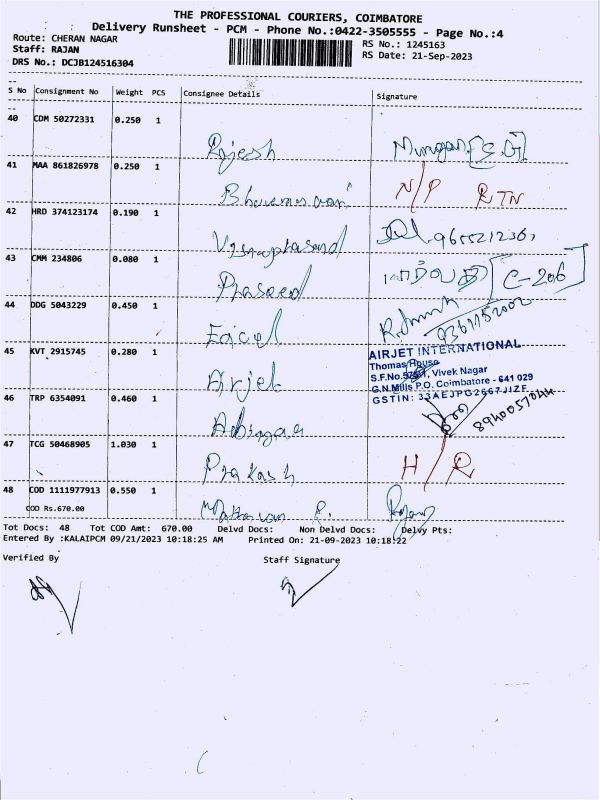 THE PROFESSIONAL COURIERS, COIMBATORE
Delivery Runsheet - PCM - Phone No.:0422-3505555 - Page No.:4
Route: CHERAN NAGAR RS No.: 1245163
Staff: RAJAN RS Date: 21-Sep-2023
DRS No.: DCJB124516304
S No Consignment No Weight PCS Consignee Details Signature
40 CDM 50272331 0.250 1
Rajesh Murugan
41 MAA 861826978 0.250 1
N/P RTN
42 HRD 374123174 0.190 1
43 CMM 234806 0.080 1
C-206
44 DDG 5043229 0.450 1
AIRJET INTERNATIONAL
45 KVT 2915745 0.280 1
Thomas House
Vivek Nagar
G.N.Mills P.O. Coimbatore - 641 029
GSTIN: 33AEJPG2667J1ZF
46 TRP 6354091 0.460 1
47 TCG 50468905 1.030 1
Prakash H/R
48 COD 1111977913 0.550 1
COD Rs.670.00
Tot Docs: 48 Tot COD Amt: 670.00 Delvd Docs: Non Delvd Docs: Delvy Pts:
Entered By :KALAIPCM 09/21/2023 10:18:25 AM Printed On: 21-09-2023 10:18:22
Verified By Staff Signature